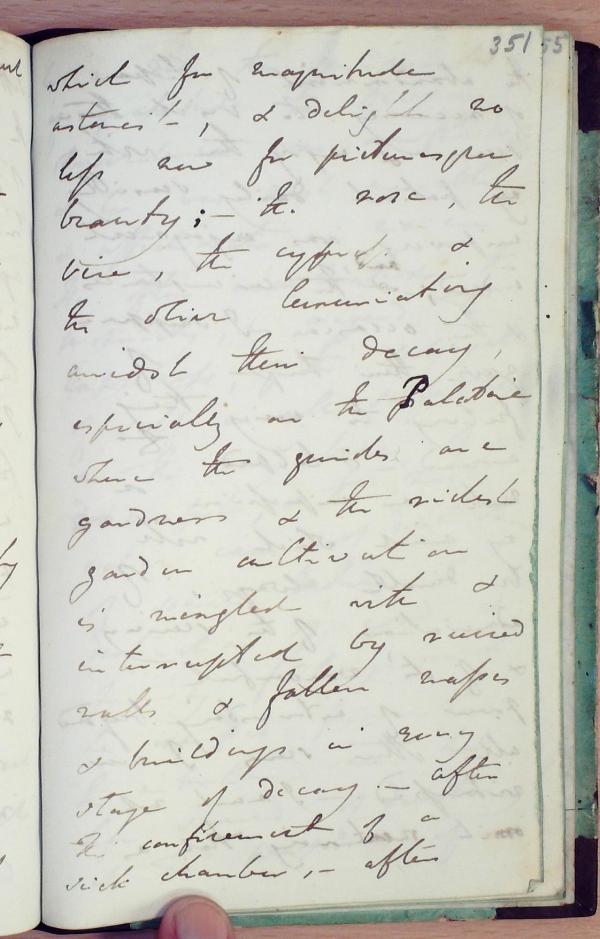 351 55
which for magnitude
astonish, & delight no
less now for picturesque
beauty; – the rose, the
vine, the cypress &
the olive luxuriating
amidst their decay,
especially on the Palatine
where the guides are
gardners & the richest
garden cultivation
is mingled with &
interrupted by ruined
walls & fallen masses
& buildings in every
stage of decay – after
the confinement of a
sick chamber, – after